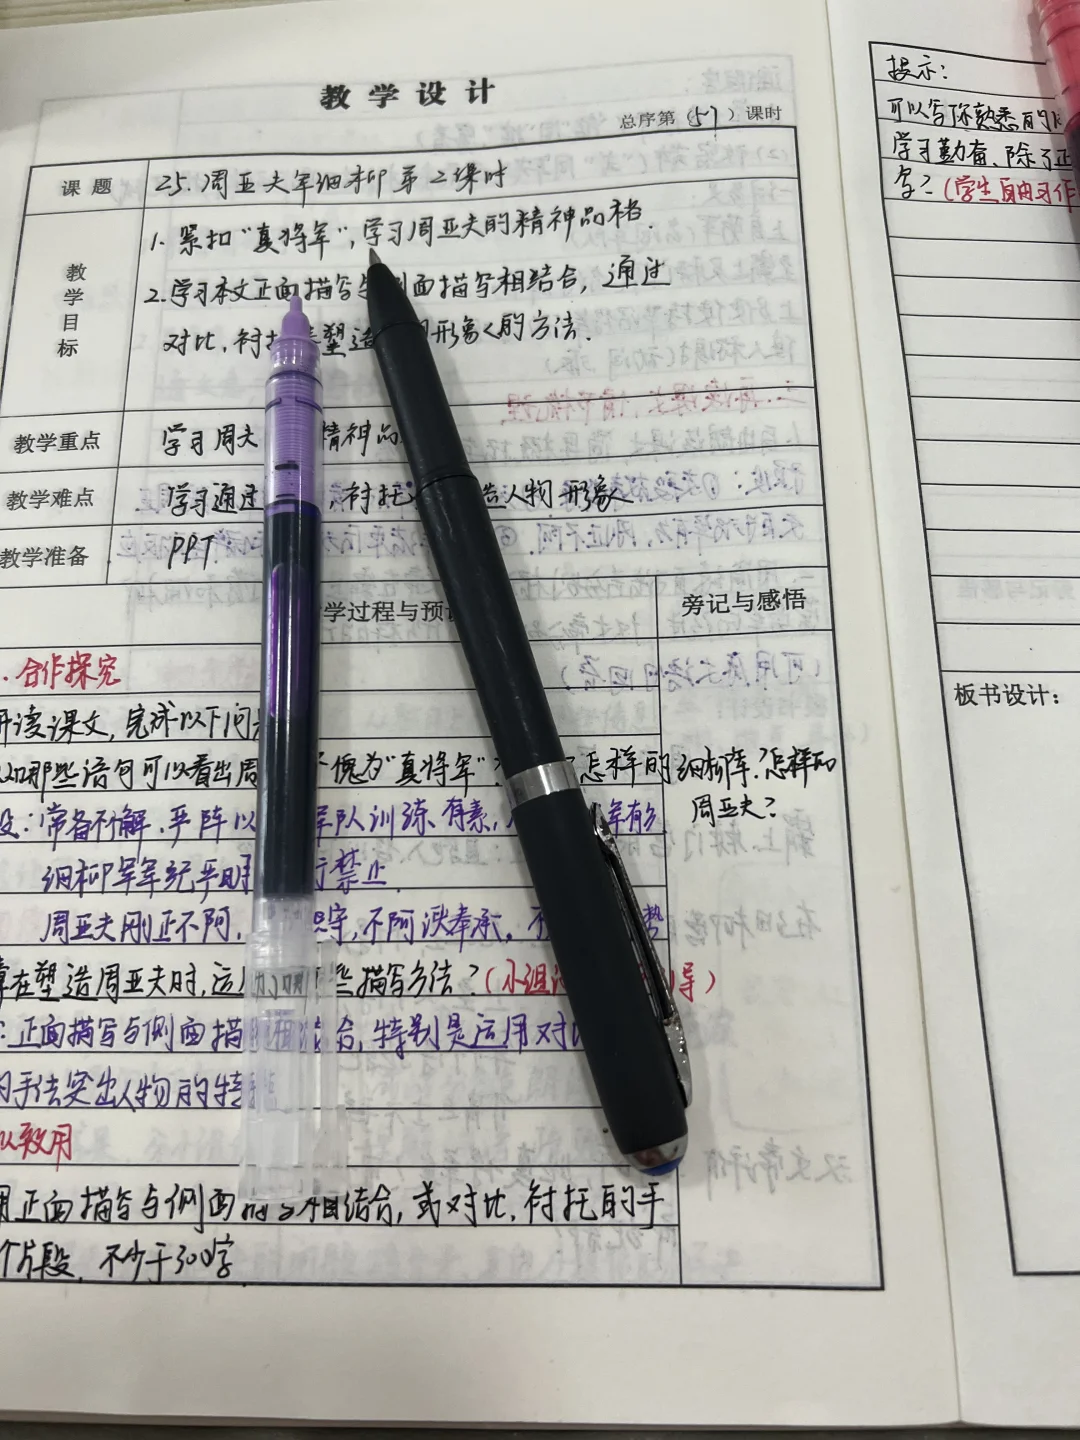 教学设计
总序第(57)课时
课题
25.周亚夫军细柳第2课时
教学目标
1.紧扣“真将军”,学习周亚夫的精神品格.
2.学习本文正面描写 侧面描写相结合,通过
对比,衬 塑造 形象的方法.
教学重点
学习周夫 精神品
教学难点
学习通过 ,衬托 造人物形象
教学准备
PPT
学过程与预
旁记与感悟
.合作探究
研读课文,完成以下问
从哪些语句可以看出周 不愧为“真将军”? 怎样的细柳军?怎样的
周亚夫?
设:常备不懈.严阵以 军队训练有素,
细柳军军纪严明 行禁止.
周亚夫刚正不阿. 忠守,不阿谀奉承,不 势
章在塑造周亚夫时,运 些描写方法?(小组 导)
:正面描写与侧面描 相结合,特别是运用对比
的手法突出人物的特
以致用
用正面描写与侧面 相结合,或对比,衬托的手
个片段,不少于300字
提示:
可以写你熟悉的
学习勤奋、除了正
字?(学生自由习作
板书设计: